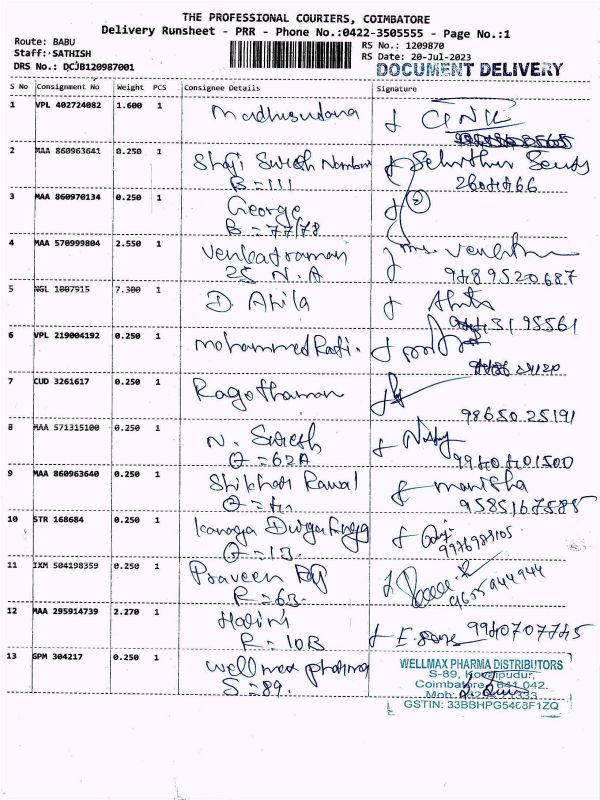 THE PROFESSIONAL COURIERS, COIMBATORE
Delivery Runsheet - PRR - Phone No.:0422-3505555 - Page No.:1
Route: BABU
Staff: SATHISH
DRS No.: DCJB120987001
RS No.: 1209870
RS Date: 20-Jul-2023
DOCUMENT DELIVERY
S No Consignment No Weight PCS Consignee Details Signature
1 VPL 402724082 1.600 1 Madhusudana
2 MAA 860963641 0.250 1 Shaji Suresh
B=111
3 MAA 860970134 0.250 1 George
B=77/78
4 MAA 570999804 2.550 1 Venkatraman
25 N.A 9489520687
5 NGL 1007915 7.300 1 D Ahila
6 VPL 219004192 0.250 1 Mohammed Rafi.
7 CUD 3261617 0.250 1 Ragothaman
98650 25191
8 MAA 571315100 0.250 1 N. Suresh
Q=62A
9 MAA 860963640 0.250 1 Shikhar Rawal Manisha
9585167585
10 STR 168684 0.250 1 Kanaga Durga
Q=13.
11 IXM 504198359 0.250 1 Praveen Raj
R=63. 9655944944
12 MAA 295914739 2.270 1
R=10B
13 GPM 304217 0.250 1 Wellmax pharma
S=89.
WELLMAX PHARMA DISTRIBUTORS
S-89, Kovaipudur,
Coimbatore - 641 042.
GSTIN: 33BBHPG5468F1ZQ